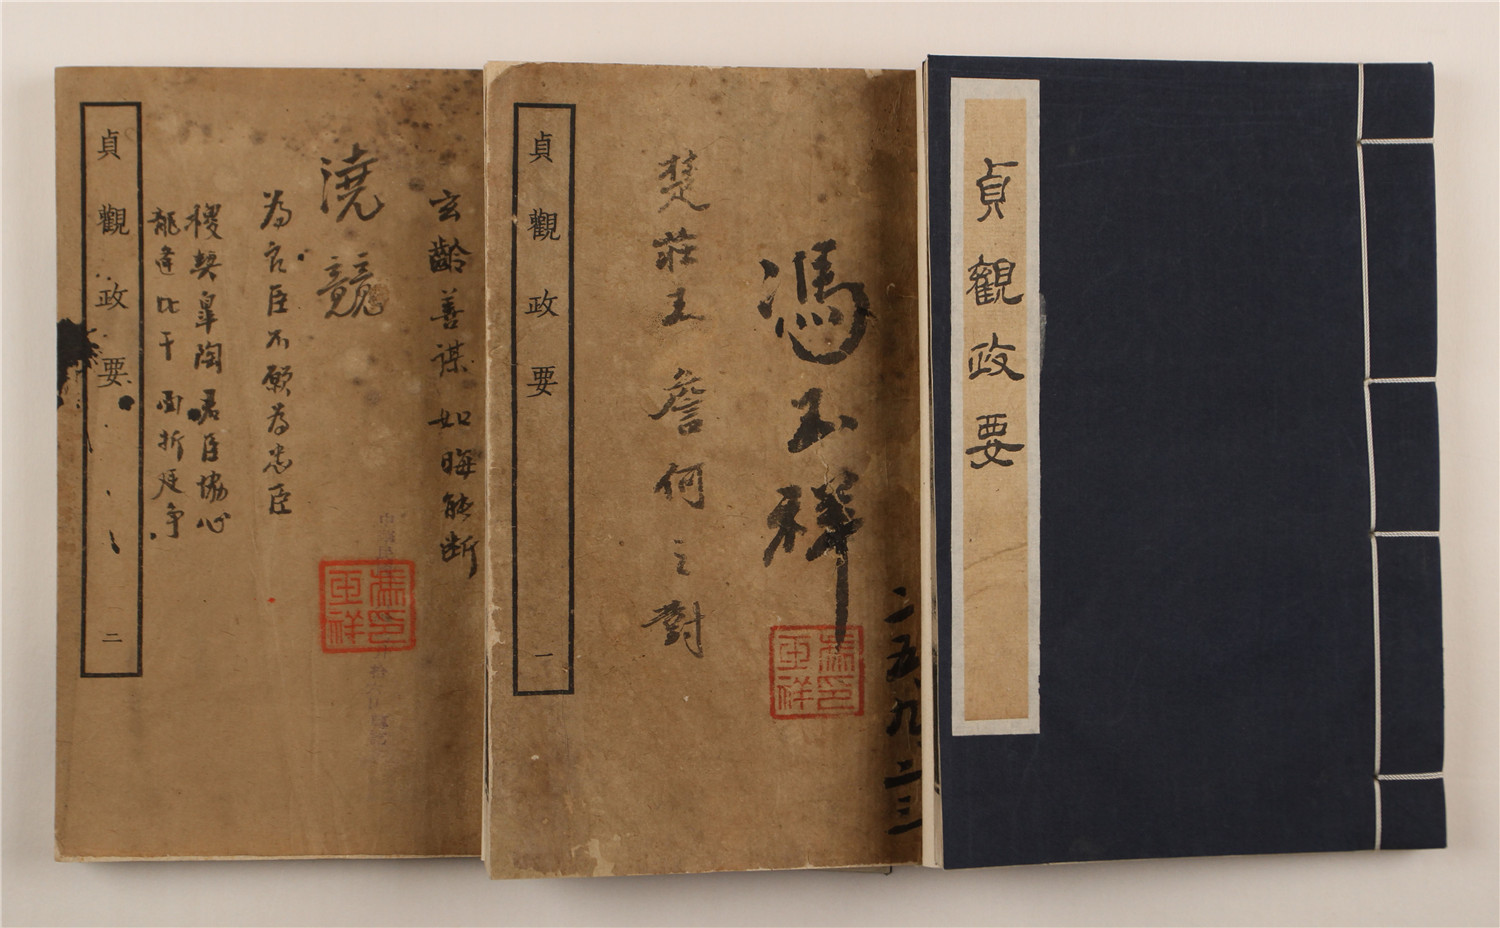 貞觀政要
二五、九、二三
馮玉祥
馮玉祥印
楚莊王詹何之對
貞觀政要 一
玄齡善謀如晦能斷
澆競
馮玉祥印
為良臣不願為忠臣
稷契皋陶君臣協心
龍逢比干面折廷爭
貞觀政要 二